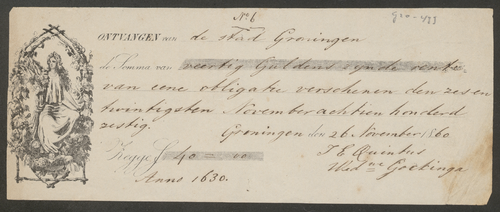 No. 6
gro - 433
ONTVANGEN van de stad Groningen
de Somma van veertig Guldens zijnde rente
van eene obligatie verschenen den zes en
twintigsten November achtien honderd
zestig.
Groningen den 26 November 1860
Zegge f 40 = 00
J E Quintus
Anno 1630.
Wed ne Gockinga